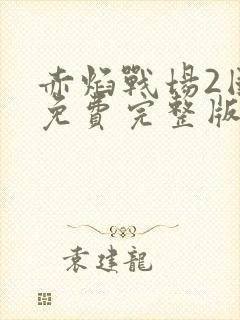 赤焰戰場2
免費完整版
袁建龍